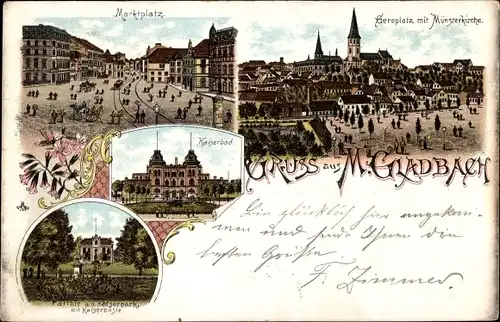 Marktplatz.
Geroplatz mit Münsterkirche.
Kaiserbad
GRUSS aus M. GLADBACH
Parthie a. d. Kaiserpark,
mit Kaiserbüste
Bin glücklich hier angekom-
men und sende Ihnen die
besten Grüße
F. Zimmer.